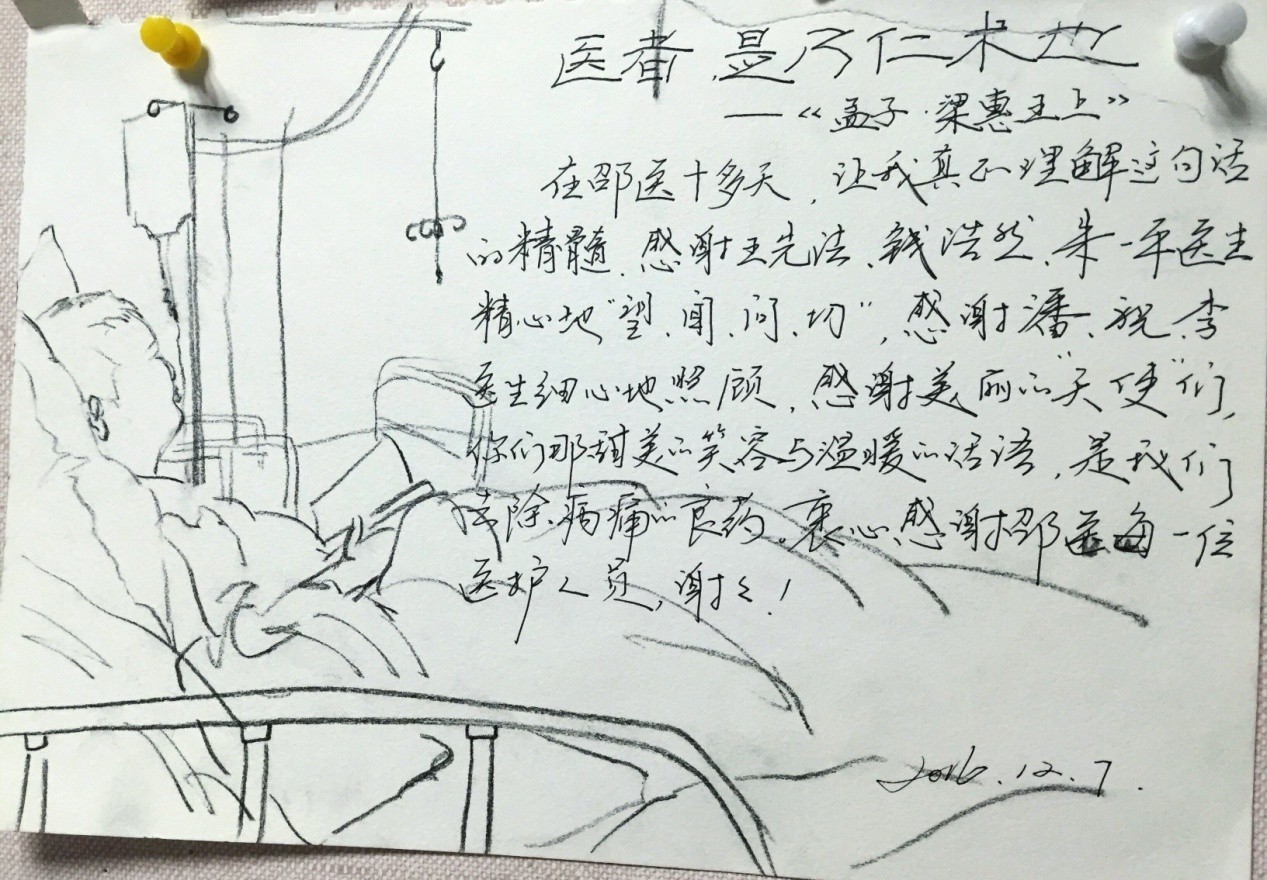 医者,是乃仁术也
——《孟子·梁惠王上》
在邵医十多天,让我真正理解这句话
的精髓.感谢王先法、钱浩然、朱一平医生
精心地"望、闻、问、切",感谢潘、祝、李
医生细心地照顾,感谢美丽的"天使"们,
你们那甜美的笑容与温暖的话语,是我们
去除病痛的良药。衷心感谢邵医每一位
医护人员,谢々!
2016.12.7.